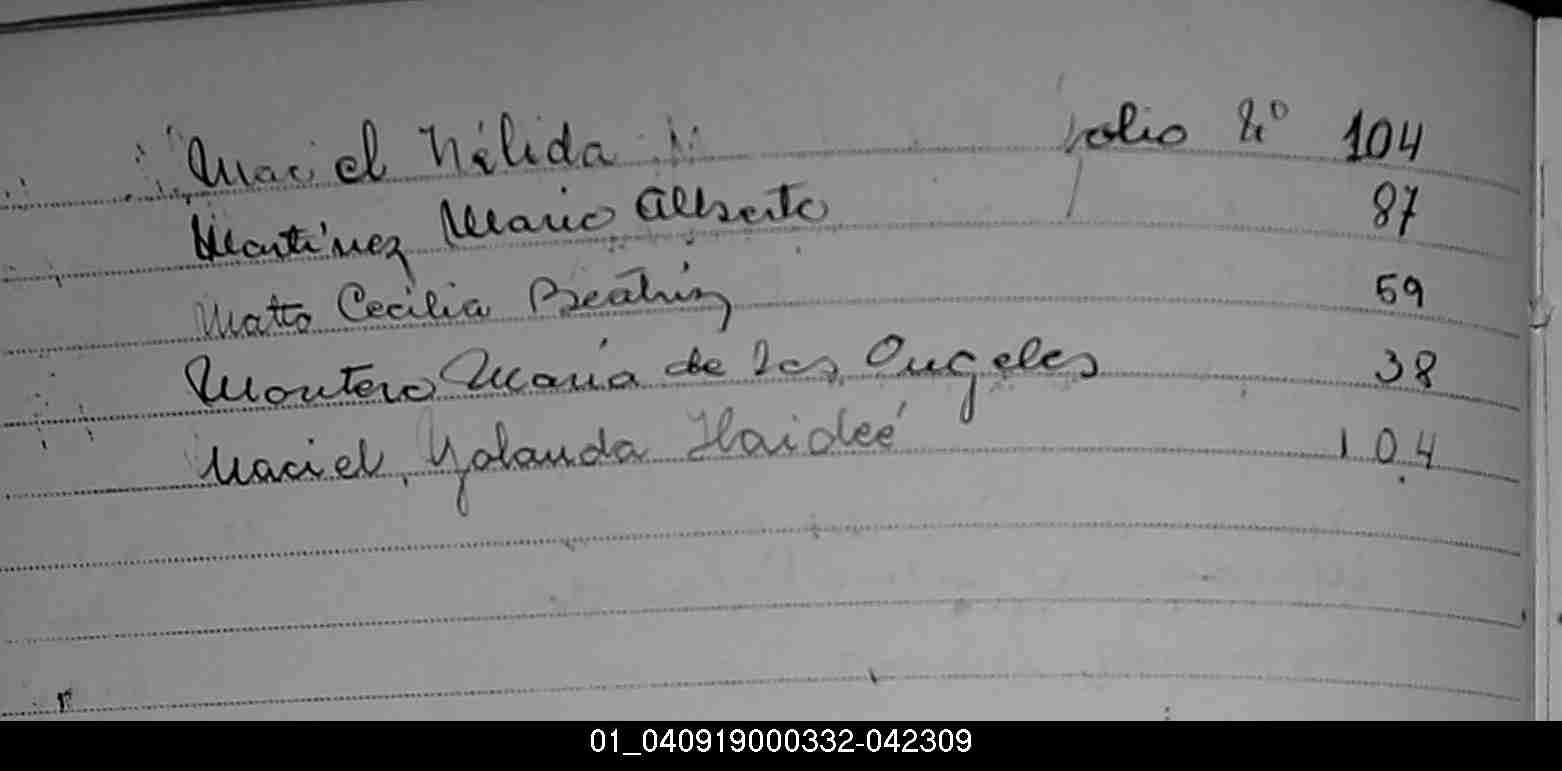 Maciel Nélida folio Nº 104
Martínez Mario Alberto 87
Matto Cecilia Beatriz 59
Montero María de los Angeles 38
Maciel, Yolanda Haideé 104
01_040919000332-042309